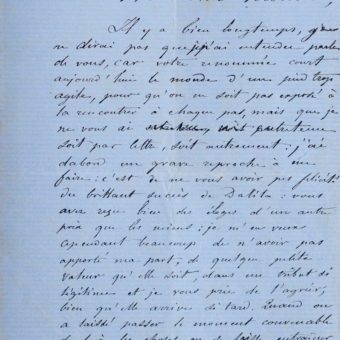 Il y a bien longtemps, je
ne dirai pas que j'ai entendu parler
de vous, car votre renommée court
aujourd'hui le monde d'un pied trop
agile, pour qu'on ne soit pas exposé à
la rencontrer à chaque pas, mais que je
ne vous ai soit
soit par lettre, soit autrement : j'ai
dabord un grave reproche à me
faire : c'est de ne vous avoir pas félicité
du brillant succès de Dalila : vous
avez reçu bien des éloges d'un autre
prix que les miens : je m'en veux
cependant beaucoup de n'avoir pas
apporté ma part, de quelque petite
valeur qu'elle soit, dans un tribut si
légitime et je vous prie de l'agréer,
bien qu'elle arrive si tard. Quand on
a laissé passer le moment convenable